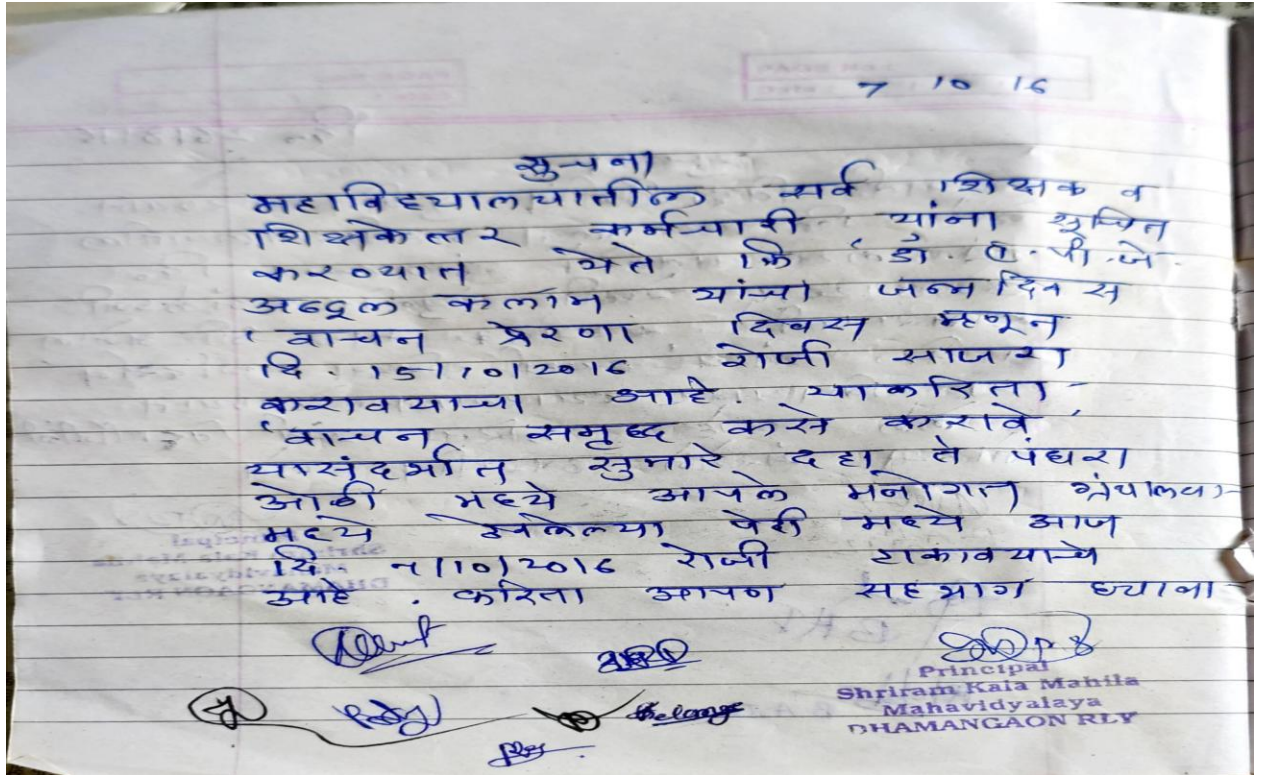 7 10 16
सुचना
महाविद्यालयातील सर्व शिक्षक व
शिक्षकेत्तर कर्मचारी यांना सुचित
करण्यात येते कि 'डॉ. ए. पी. जे.
अब्दूल कलाम यांचा जन्मदिवस
'वाचन प्रेरणा दिवस म्हणून
दि. 15/10/2016 रोजी साजरा
करावयाचा आहे. याकरिता -
'वाचन समृध्द कसे करावे'
यासंदर्भात सुमारे दहा ते पंधरा
ओळी मध्ये आपले मनोगत ग्रंथालया-
मध्ये ठेवलेल्या पेटी मध्ये आज
दि 7/10/2016 रोजी टाकावयाचे
आहे. करिता आपण सहभाग घ्यावा
Principal
Shriram Kala Mahila
Mahavidyalaya
DHAMANGAON RLY